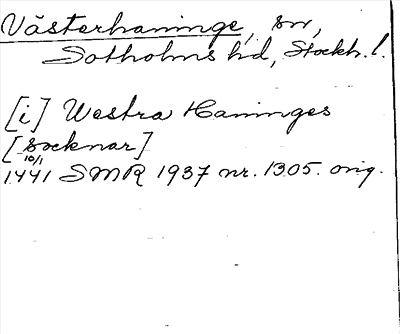 Västerhaninge, sn,
Sotholms hd, Stockh. l.
[i] Westra Haninges
[socknar]
10/1
1441 SMR 1937 nr. 1305. orig.